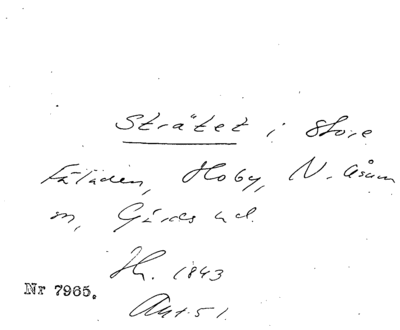 Strätet i Store
Fäladen, Hoby, N. Åsum
m, Gärds hd.
Hr. 1843
Nr 7965.
Akt 51.